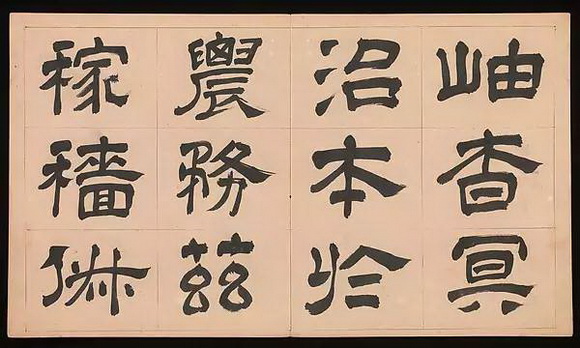 岫杳冥
治本於
農務茲
稼穡俶